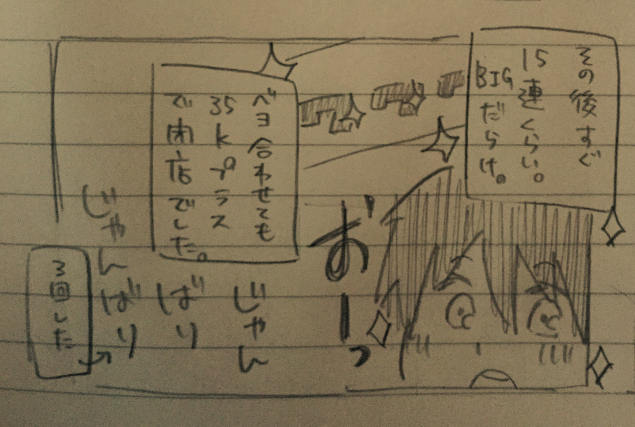 その後すぐ
15連くらい。
BIGだらけ。
おーっ
ペヨ合わせても
35kプラス
で閉店でした。
じゃん
ばり
じゃん
ばり
3回した